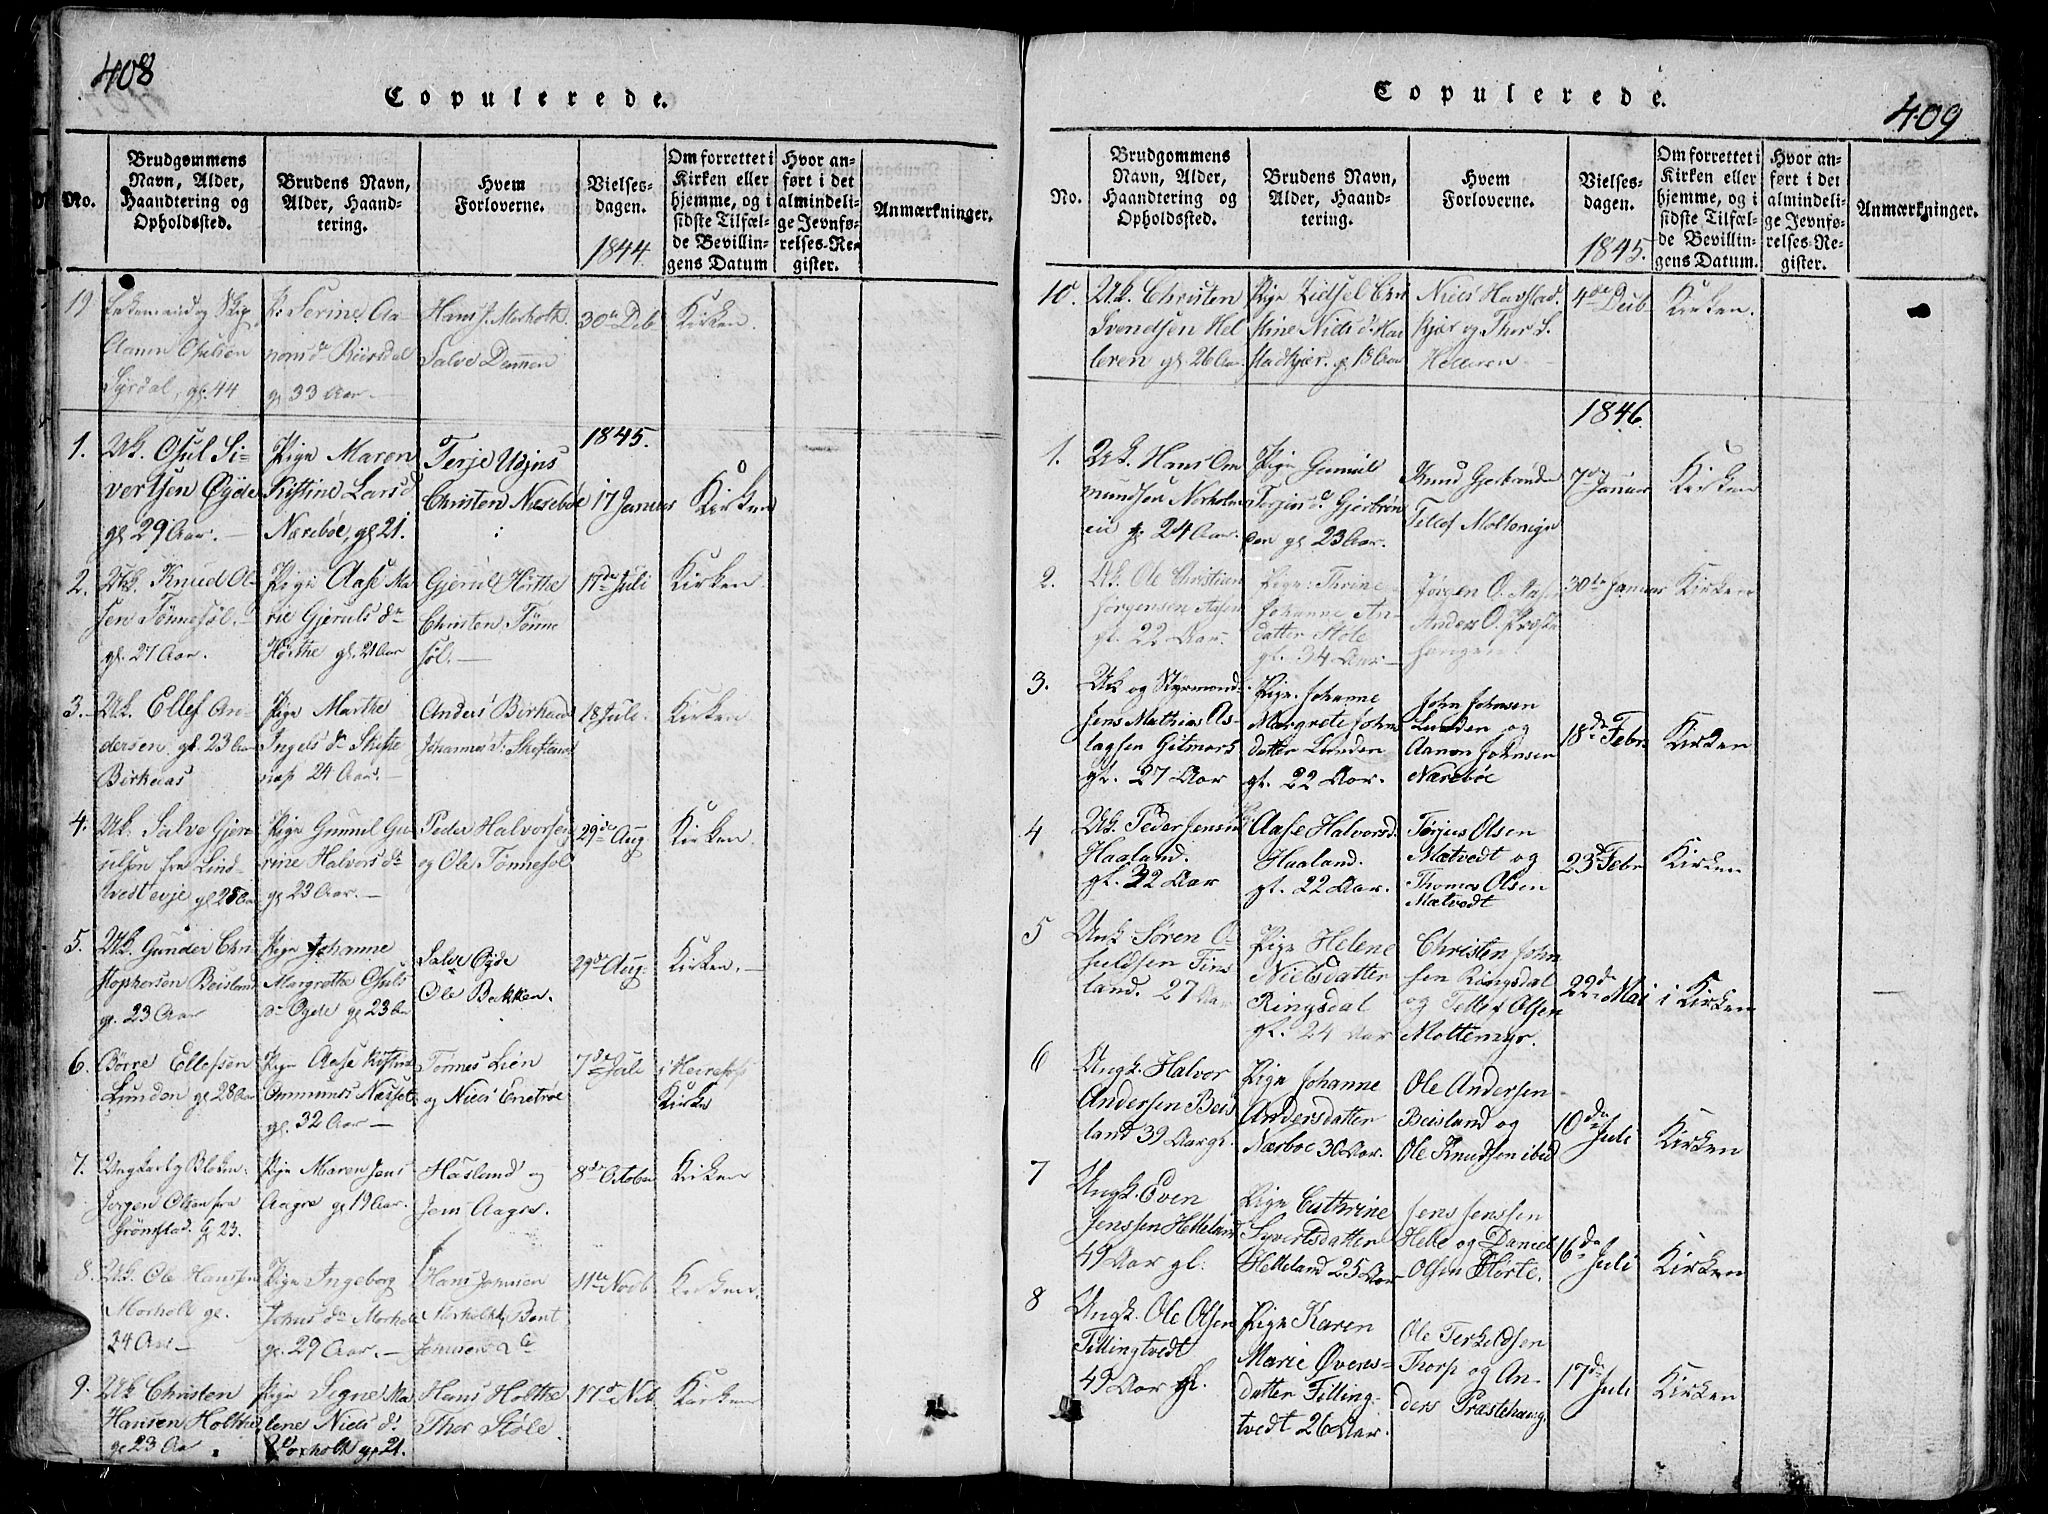 408
Copulerede.
No.
Brudgommens
Navn, Alder,
Haandtering og
Opholdssted.
Brudens Navn,
Alder, Haand-
tering.
Hvem
Forloverne.
Vielses-
dagen.
1844.
Om forrettet i
Kirken eller
hjemme, og i
sidste Tilfæl-
de Bevillin-
gens Datum
Hvor an-
ført i det
almindeli-
ge Jevnfø-
relses-Re-
gister.
Anmærkninger.
19
Enkemand og Skip
Aanon Osulsen
Syrdal, gl. 44
P. Serine Aa-
nons dr Riisdal
gl 33 Aar.
Hans J. Morholt.
Salve Dømmen
30te Deb
Kirken.
1845.
1.
Uk. Osul Si-
vertsen Øyde
gl 29 Aar. —
Pige Maren
Kistine Lars d
Næreböe, gl 21.
Terje Udjus
Christen Næreböe
17 Januar
Kirken
2.
Uk. Knud Ol-
sen Tönnesöl. —
gl. 27 Aar.
Pige Aase Ma-
rie Gjeruls dr
Hörthe gl. 21 Aar
Gjerul Hörthe
Christen Tönne
söl. —
17de Juli
Kirken
3.
Uk. Ellef An-
dersen gl. 23 Aar
Birkenas
Pige Marthe
Ingels dr Skifte
næs 24 Aar. —
Anders Birkenas
Johannes S. Skeftenes
18 Juli.
Kirken
4.
Uk. Salve Gjer-
ulsen fra Lind-
tvedt evje gl 25 Aar
Pige Gunnul Gu-
rine Halvors dr
gl 23 Aar. —
Peder Halvorsen
og Ole Tönnesöl
29de Aug
Kirken.
5.
Uk. Gunder Chri-
stophersen Beisland
gl. 23 Aar
Pige Johanne
Margrethe Osuls
dr Øyde gl 23 Aar
Salve Øyde
Ole Bakken.
29de Aug.
Kirken. —
6.
Börre Ellefsen
Lunden gl 28 Aar
Pige Aase Kistine
Ommunds Næssel
gl. 32 Aar —
Tönnes Lien
og Niels Enetröe
7de Juli
i Heirefos
Kirke
7.
Ungkarl og Blokm.
Jørgen Olsen fra
Grömstad. gl 23.
Pige Maren Jens
Aagre gl 19 Aar.
Hasland og
Jens Aagre.
8de October
Kirken
8.
Uk. Ole Hansen
Morholt gl.
24 Aar —
Pige Ingeborg
Johns dr Morholt
gl. 29 Aar. —
Hans Jonsen
Morholt, Bent
Jensen do
11te Novb
Kirken.
9.
Uk Christen
Hansen Holthe
gl 23 Aar
Pige Signe Ma-
lene Niels d.
Voxholt gl 21.
Hans Holthe
Thor Støle.
17de Nvb
Kirken
409
Copulerede.
No.
Brudgommens
Navn, Alder,
Haandtering og
Opholdssted.
Brudens Navn,
Alder, Haand-
tering.
Hvem
Forloverne.
Vielses-
dagen.
1845.
Om forrettet i
Kirken eller
hjemme, og i
sidste Tilfæl-
de Bevillin-
gens Datum.
Hvor an-
ført i det
almindeli-
ge Jevnfø-
relses-Re-
gister.
Anmærkninger.
10.
Uk. Christen
Svendsen Hel
leren gl 26 Aar.
Pige Lidsel Chri
stine Niels d. Hav
stadkjær. gl 18 Aar
Niels Havstad-
kjær og Thor S.
Helleren
4de Deib
Kirken.
1846.
1.
Uk. Hans Om
mundsen Norholm
en gl 24 Aar.
Pige Gunnul
Torjus d. Gjerbrön
den gl 23 Aar.
Knud Gjerbrönden
Tellef Moltemyr
7de Januar
Kirken
2.
Uk. Ole Christian
Jørgensen Aasen
gl. 22 Aar.
Pige Thrine
Johanne An-
datter Støle
gl. 34 Aar —
Jørgen O. Aasen
Anders O. Præste
hougen.
30de Januar
Kirken
3.
Uk og Styrmand
Jens Mathias As-
lagsen Gitmark
gl. 27 Aar
Pige Johanne
Margrete Johns
datter Lunden
gl. 22 Aar.
John Johnsen
Lunden og
Aanon Johnsen
Næreböe
18de Febr.
Kirken
4
Uk. Peder Jensen
Haaland.
gl. 32 Aar
Pg. Aase Halvorsd.
Haaland.
gl. 22 Aar.
Torjus Olsen
Mætvedt og
Thomas Olsen
Mætvedt
23de Febr
Kirken
5
Unk Søren O-
suldsen Fins
land. 27 Aar
Pige Helene
Nielsdatter
Ringsdal
gl. 24 Aar
Christen John
sen Ringsdal
og Tellef Olsen
Moltemyr.
22de Mai
i Kirken
6
Ungk. Halvor
Andersen Beis
land 39 Aar gl.
Pige Johanne
Andersdatter
Nærboe 30 Aar.
Ole Andersen
Beisland og
Ole Knudsen ibid
10de Juli
Kirken
7
Ungk. Even
Jenssen Hetteland
49 Aar gl.
Pige Cathrine
Syvertsdatter
Hetteland 25 Aar
Jens Jenssen
Helle og Daniel
Olsen Hörte.
16de Juli
Kirken
8
Ungk. Ole Olsen
Tillingtvedt
49 Aar gl.
Pige Karen
Marie Øvens-
datter Tilling-
tvedt 26 Aar.
Ole Terkeldsen
Thorp og An-
ders Præstehaug.
17de Juli
Kirken